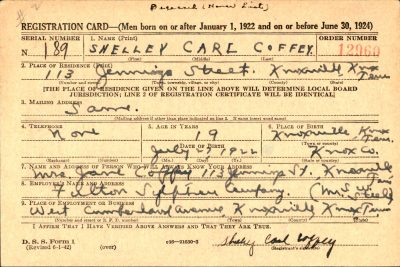 REGISTRATION CARD—(Men born on or after January 1, 1922 and on or before June 30, 1924)
SERIAL NUMBER 1. NAME (Print) ORDER NUMBER
N 189 SHELLEY CARL COFFEY 12960
(First) (Middle) (Last)
2. PLACE OF RESIDENCE (Print)
113 Jennings Street. Knoxville Knox Tenn
[THE PLACE OF RESIDENCE GIVEN ON THE LINE ABOVE WILL DETERMINE LOCAL BOARD
JURISDICTION; LINE 2 OF REGISTRATION CERTIFICATE WILL BE IDENTICAL]
3. MAILING ADDRESS
Same.
[Mailing address if other than place indicated on line 2. If same insert word same]
4. TELEPHONE 5. AGE IN YEARS 6. PLACE OF BIRTH
None 19 Knoxville Knox Tenn.
DATE OF BIRTH
July 27 1922 Knox Co.
(Exchange) (Number) (Mo.) (Day) (Yr.) (State or country)
7. NAME AND ADDRESS OF PERSON WHO WILL ALWAYS KNOW YOUR ADDRESS
Mrs. Jane Coffey 113 Jennings St. Knoxville Tenn
8. EMPLOYER'S NAME AND ADDRESS
Fulton Sylphon Company.
9. PLACE OF EMPLOYMENT OR BUSINESS
West Cumberland Avenue Knoxville Knox Tenn
(Number and street or R. F. D. number) (Town) (County) (State)
I AFFIRM THAT I HAVE VERIFIED ABOVE ANSWERS AND THAT THEY ARE TRUE.
D. S. S. Form 1
(Revised 6-1-42) (over) c16—21630-2 Shelley Carl Coffey